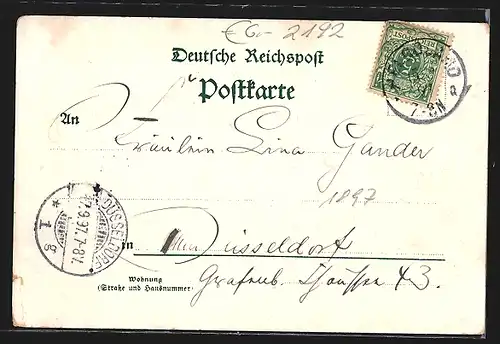 €6,- 2192
Deutsche Reichspost
Postkarte
An
Fräulein Lina Gander
1897
in Düsseldorf
Wohnung
(Straße und Hausnummer)
Grafenb. Chaussee 43.
DÜSSELDORF
7.9.97. 7-8V.
* 1 g *
7-8N
a